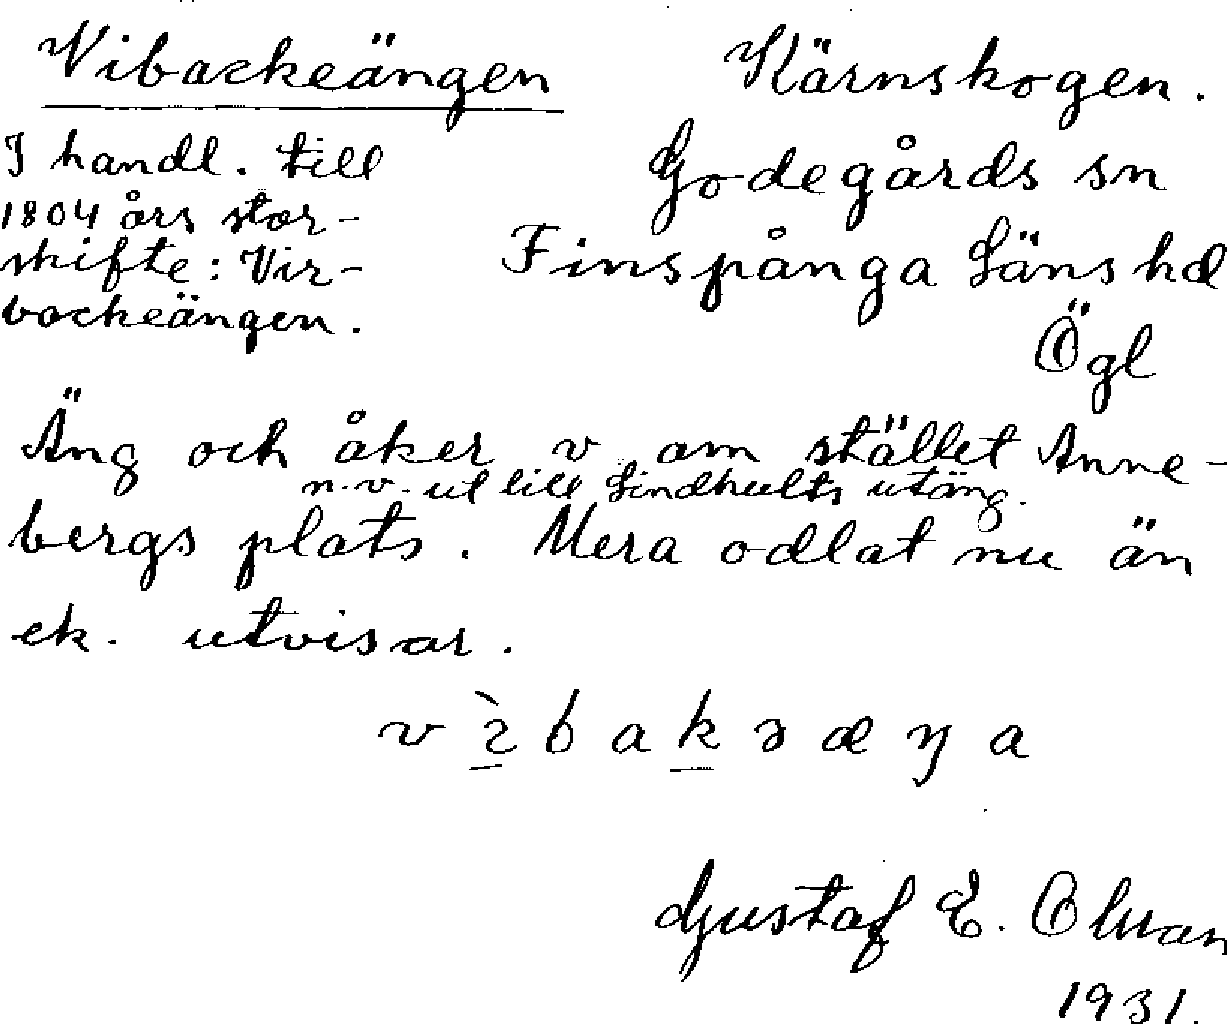 Vibackeängen
Kärnskogen.
I handl. till
1804 års stor-
skifte: Vir-
backeängen.
Godegårds sn
Finspånga Läns hd
Ögl
Äng och åker v om stället Anne-
n.v. ut till Lindhults utäng.
bergs plats. Mera odlat nu än
ek. utvisar.
vìbakɘæŋa
Gustaf E.
1931.